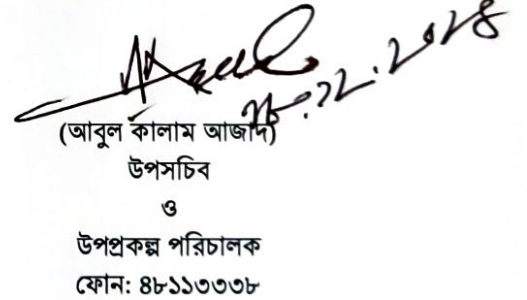 (আবুল কালাম আজাদ)
উপসচিব
ও
উপপ্রকল্প পরিচালক
ফোন: ৪৮১১৩৩৩৮